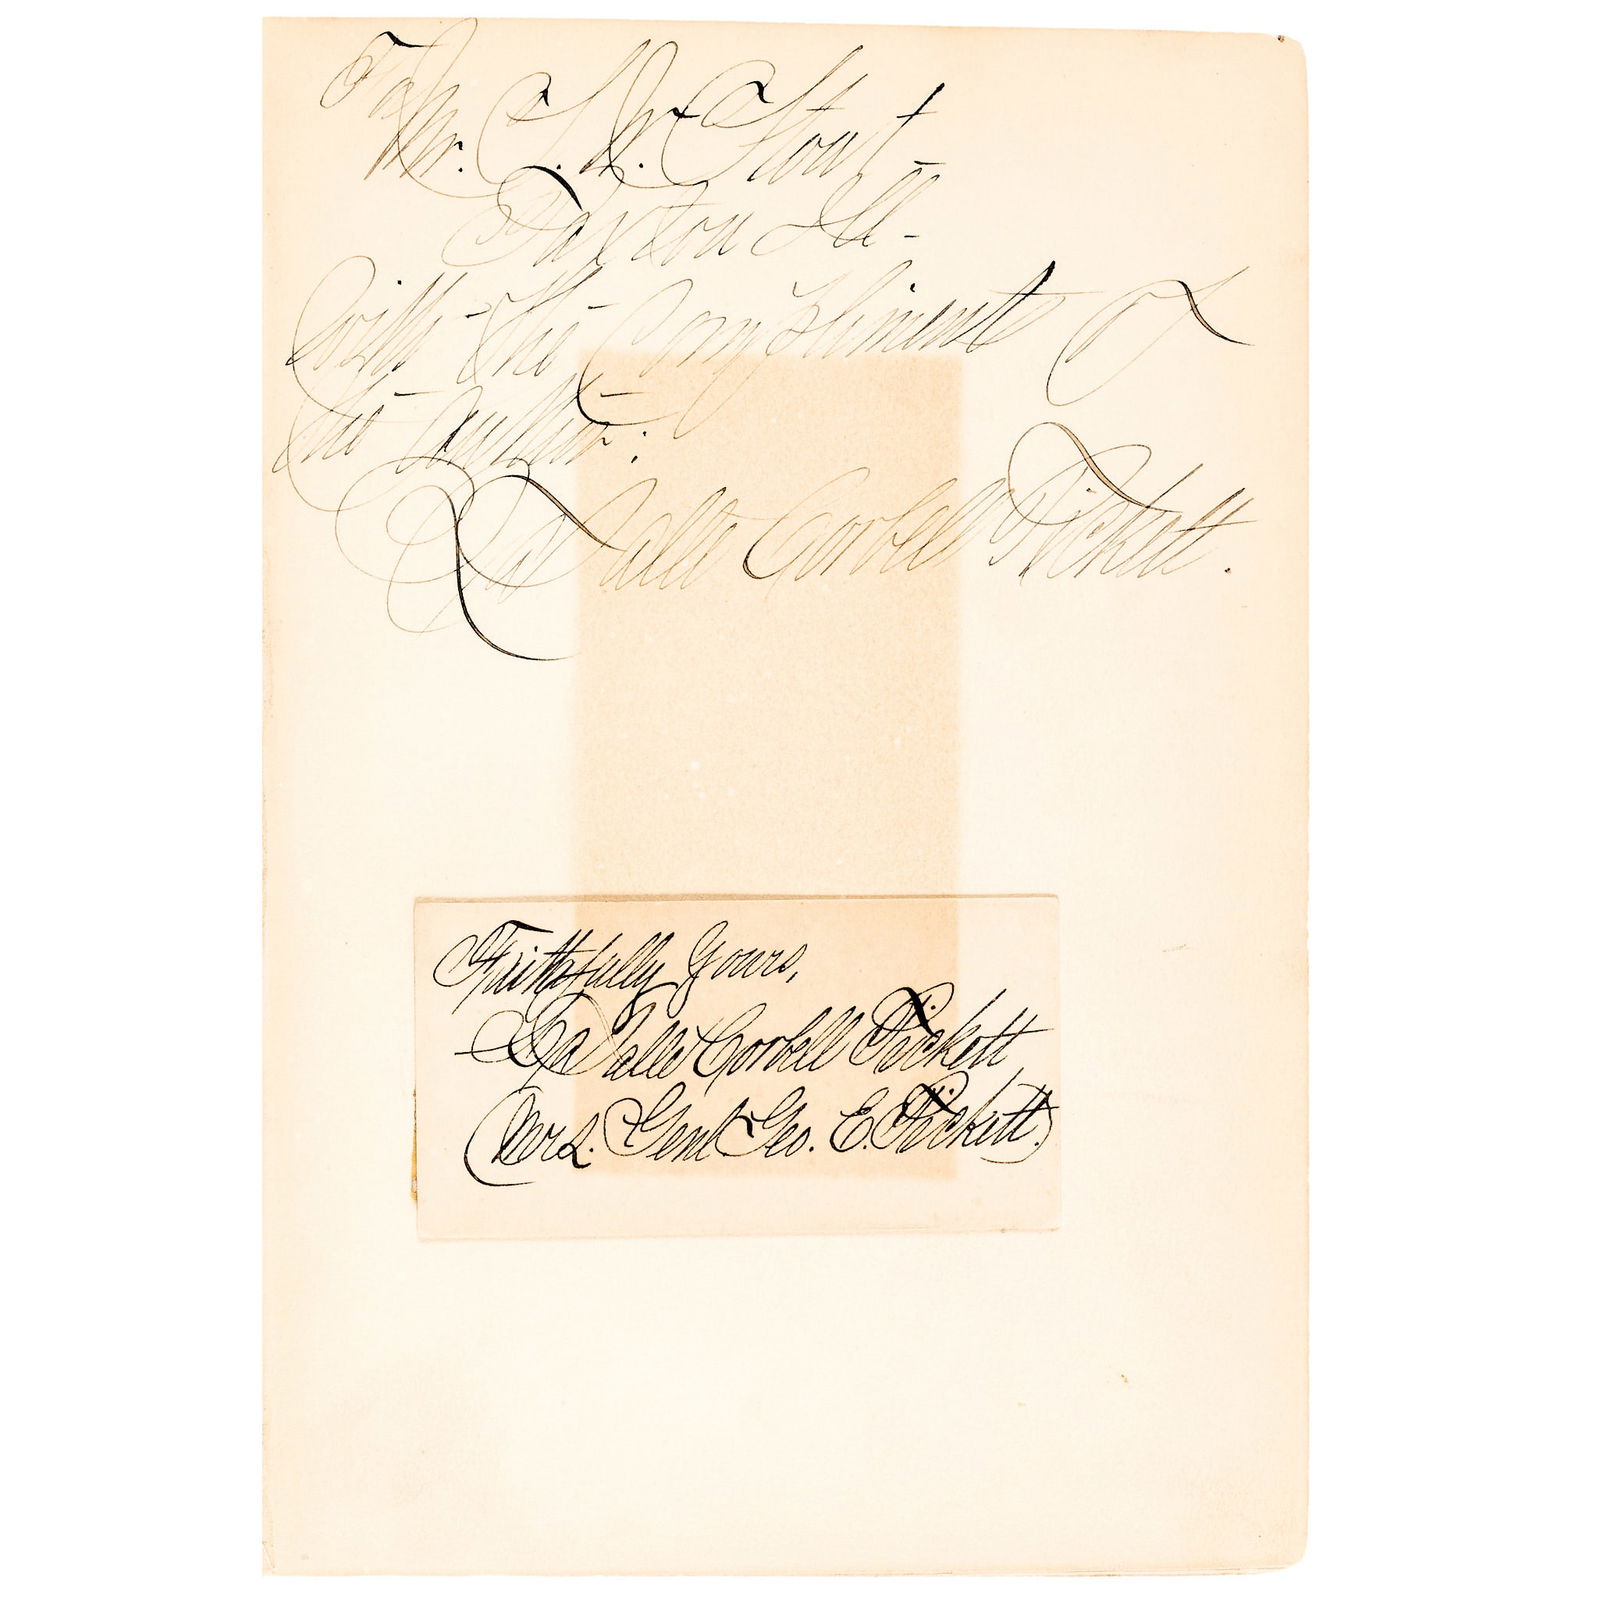 To
Mr. C. N. Stout -
Paxton Ill -
With the Compliments of
the author:
LaSalle Corbell Pickett.
Faithfully Yours,
LaSalle Corbell Pickett
(Mrs. Genl Geo. E. Pickett.)